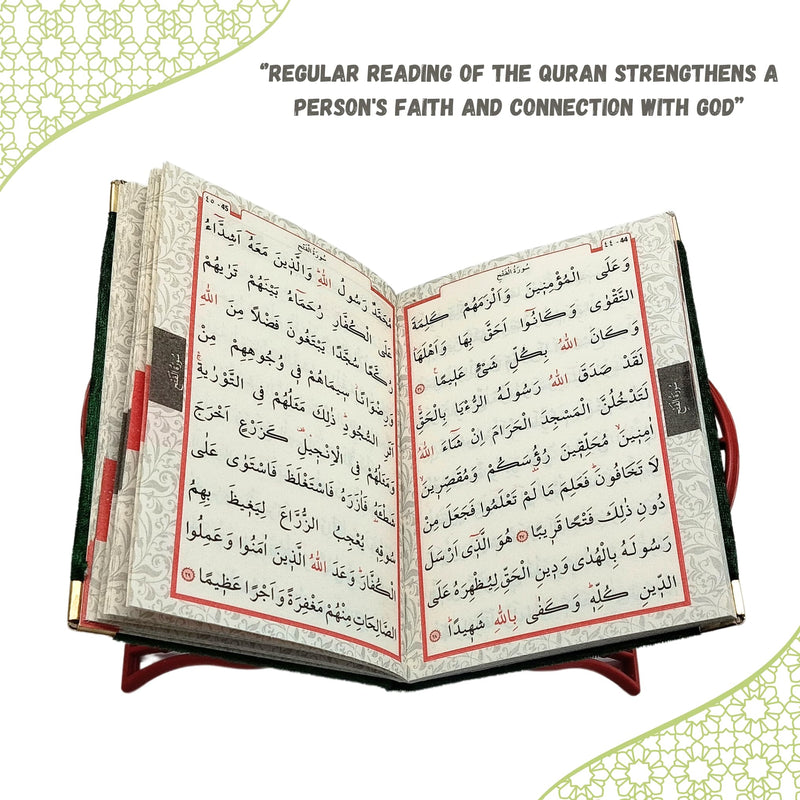 "REGULAR READING OF THE QURAN STRENGTHENS A
PERSON'S FAITH AND CONNECTION WITH GOD"
٤٤ - 44
سُورَةُ الْفَتْحِ
وَعَلَى الْمُؤْمِنِينَ وَاَلْزَمَهُمْ كَلِمَةَ
التَّقْوٰى وَكَانُٓوا اَحَقَّ بِهَا وَاَهْلَهَاۜ
وَكَانَ اللّٰهُ بِكُلِّ شَيْءٍ عَلِيمًا۟ ﴿٢٦﴾
لَقَدْ صَدَقَ اللّٰهُ رَسُولَهُ الرُّءْيَا بِالْحَقِّۚ
لَتَدْخُلُنَّ الْمَسْجِدَ الْحَرَامَ اِنْ شَٓاءَ اللّٰهُ
اٰمِنِينَۙ مُحَلِّقِينَ رُؤُ۫سَكُمْ وَمُقَصِّرِينَۙ
لَا تَخَافُونَۜ فَعَلِمَ مَا لَمْ تَعْلَمُوا فَجَعَلَ مِنْ
دُونِ ذٰلِكَ فَتْحًا قَرِيبًا ﴿٢٧﴾ هُوَ الَّذ۪ٓي اَرْسَلَ
رَسُولَهُ بِالْهُدٰى وَدِينِ الْحَقِّ لِيُظْهِرَهُ عَلَى
الدِّينِ كُلِّهٖۜ وَكَفٰى بِاللّٰهِ شَهِيدًاۜ ﴿٢٨﴾
سُورَةُ الْفَتْحِ
٤٥ - 45
سُورَةُ الْفَتْحِ
مُحَمَّدٌ رَسُولُ اللّٰهِۜ وَالَّذِينَ مَعَهُٓ اَشِدَّٓاءُ
عَلَى الْكُفَّارِ رُحَمَٓاءُ بَيْنَهُمْ تَرٰيهُمْ
رُكَّعًا سُجَّدًا يَبْتَغُونَ فَضْلًا مِنَ اللّٰهِ
وَرِضْوَانًاۘ سِيمَاهُمْ فِي وُجُوهِهِمْ مِنْ
اَثَرِ السُّجُودِۜ ذٰلِكَ مَثَلُهُمْ فِي التَّوْرٰيةِۚ
وَمَثَلُهُمْ فِي الْاِنْجِيلِ۠ كَزَرْعٍ اَخْرَجَ
شَطْـَٔهُ فَاٰزَرَهُ فَاسْتَغْلَظَ فَاسْتَوٰى عَلٰى
سُوقِهٖ يُعْجِبُ الزُّرَّاعَ لِيَغِيظَ بِهِمُ
الْكُفَّارَۜ وَعَدَ اللّٰهُ الَّذِينَ اٰمَنُوا وَعَمِلُوا
الصَّالِحَاتِ مِنْهُمْ مَغْفِرَةً وَاَجْرًا عَظِيمًا ﴿٢٩﴾
سُورَةُ الْفَتْحِ